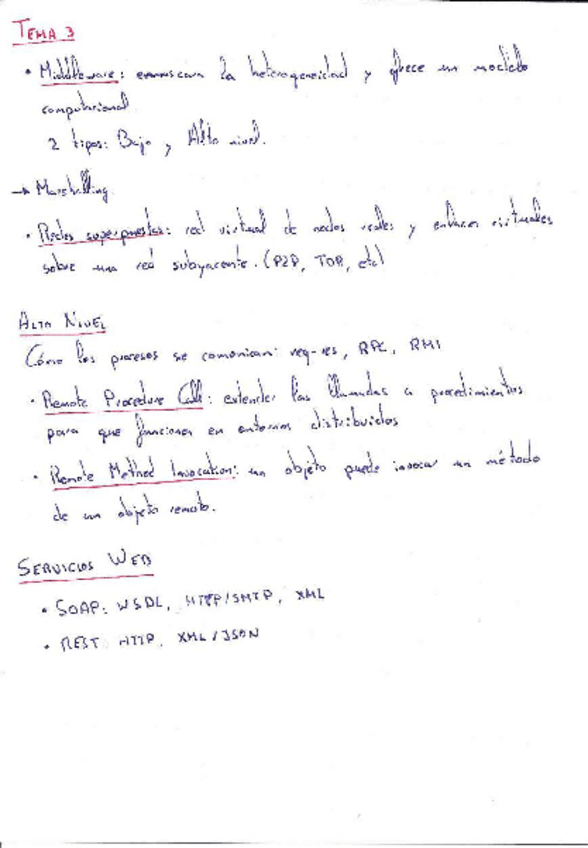 TEMA 3
• Middleware: enmascara la heterogeneidad y ofrece un modelo
computacional
2 tipos: Bajo y Alto nivel.
→ Marshalling
• Redes superpuestas: red virtual de nodos reales y enlaces virtuales
sobre una red subyacente. (P2P, TOR, etc)
ALTO NIVEL
Cómo los procesos se comunican: req-res, RPC, RMI
• Remote Procedure Call: extender las llamadas a procedimientos
para que funcionen en entornos distribuidos
• Remote Method Invocation: un objeto puede invocar un método
de un objeto remoto.
SERVICIOS WEB
• SOAP: WSDL, HTTP/SMTP, XML
• REST: HTTP, XML/JSON